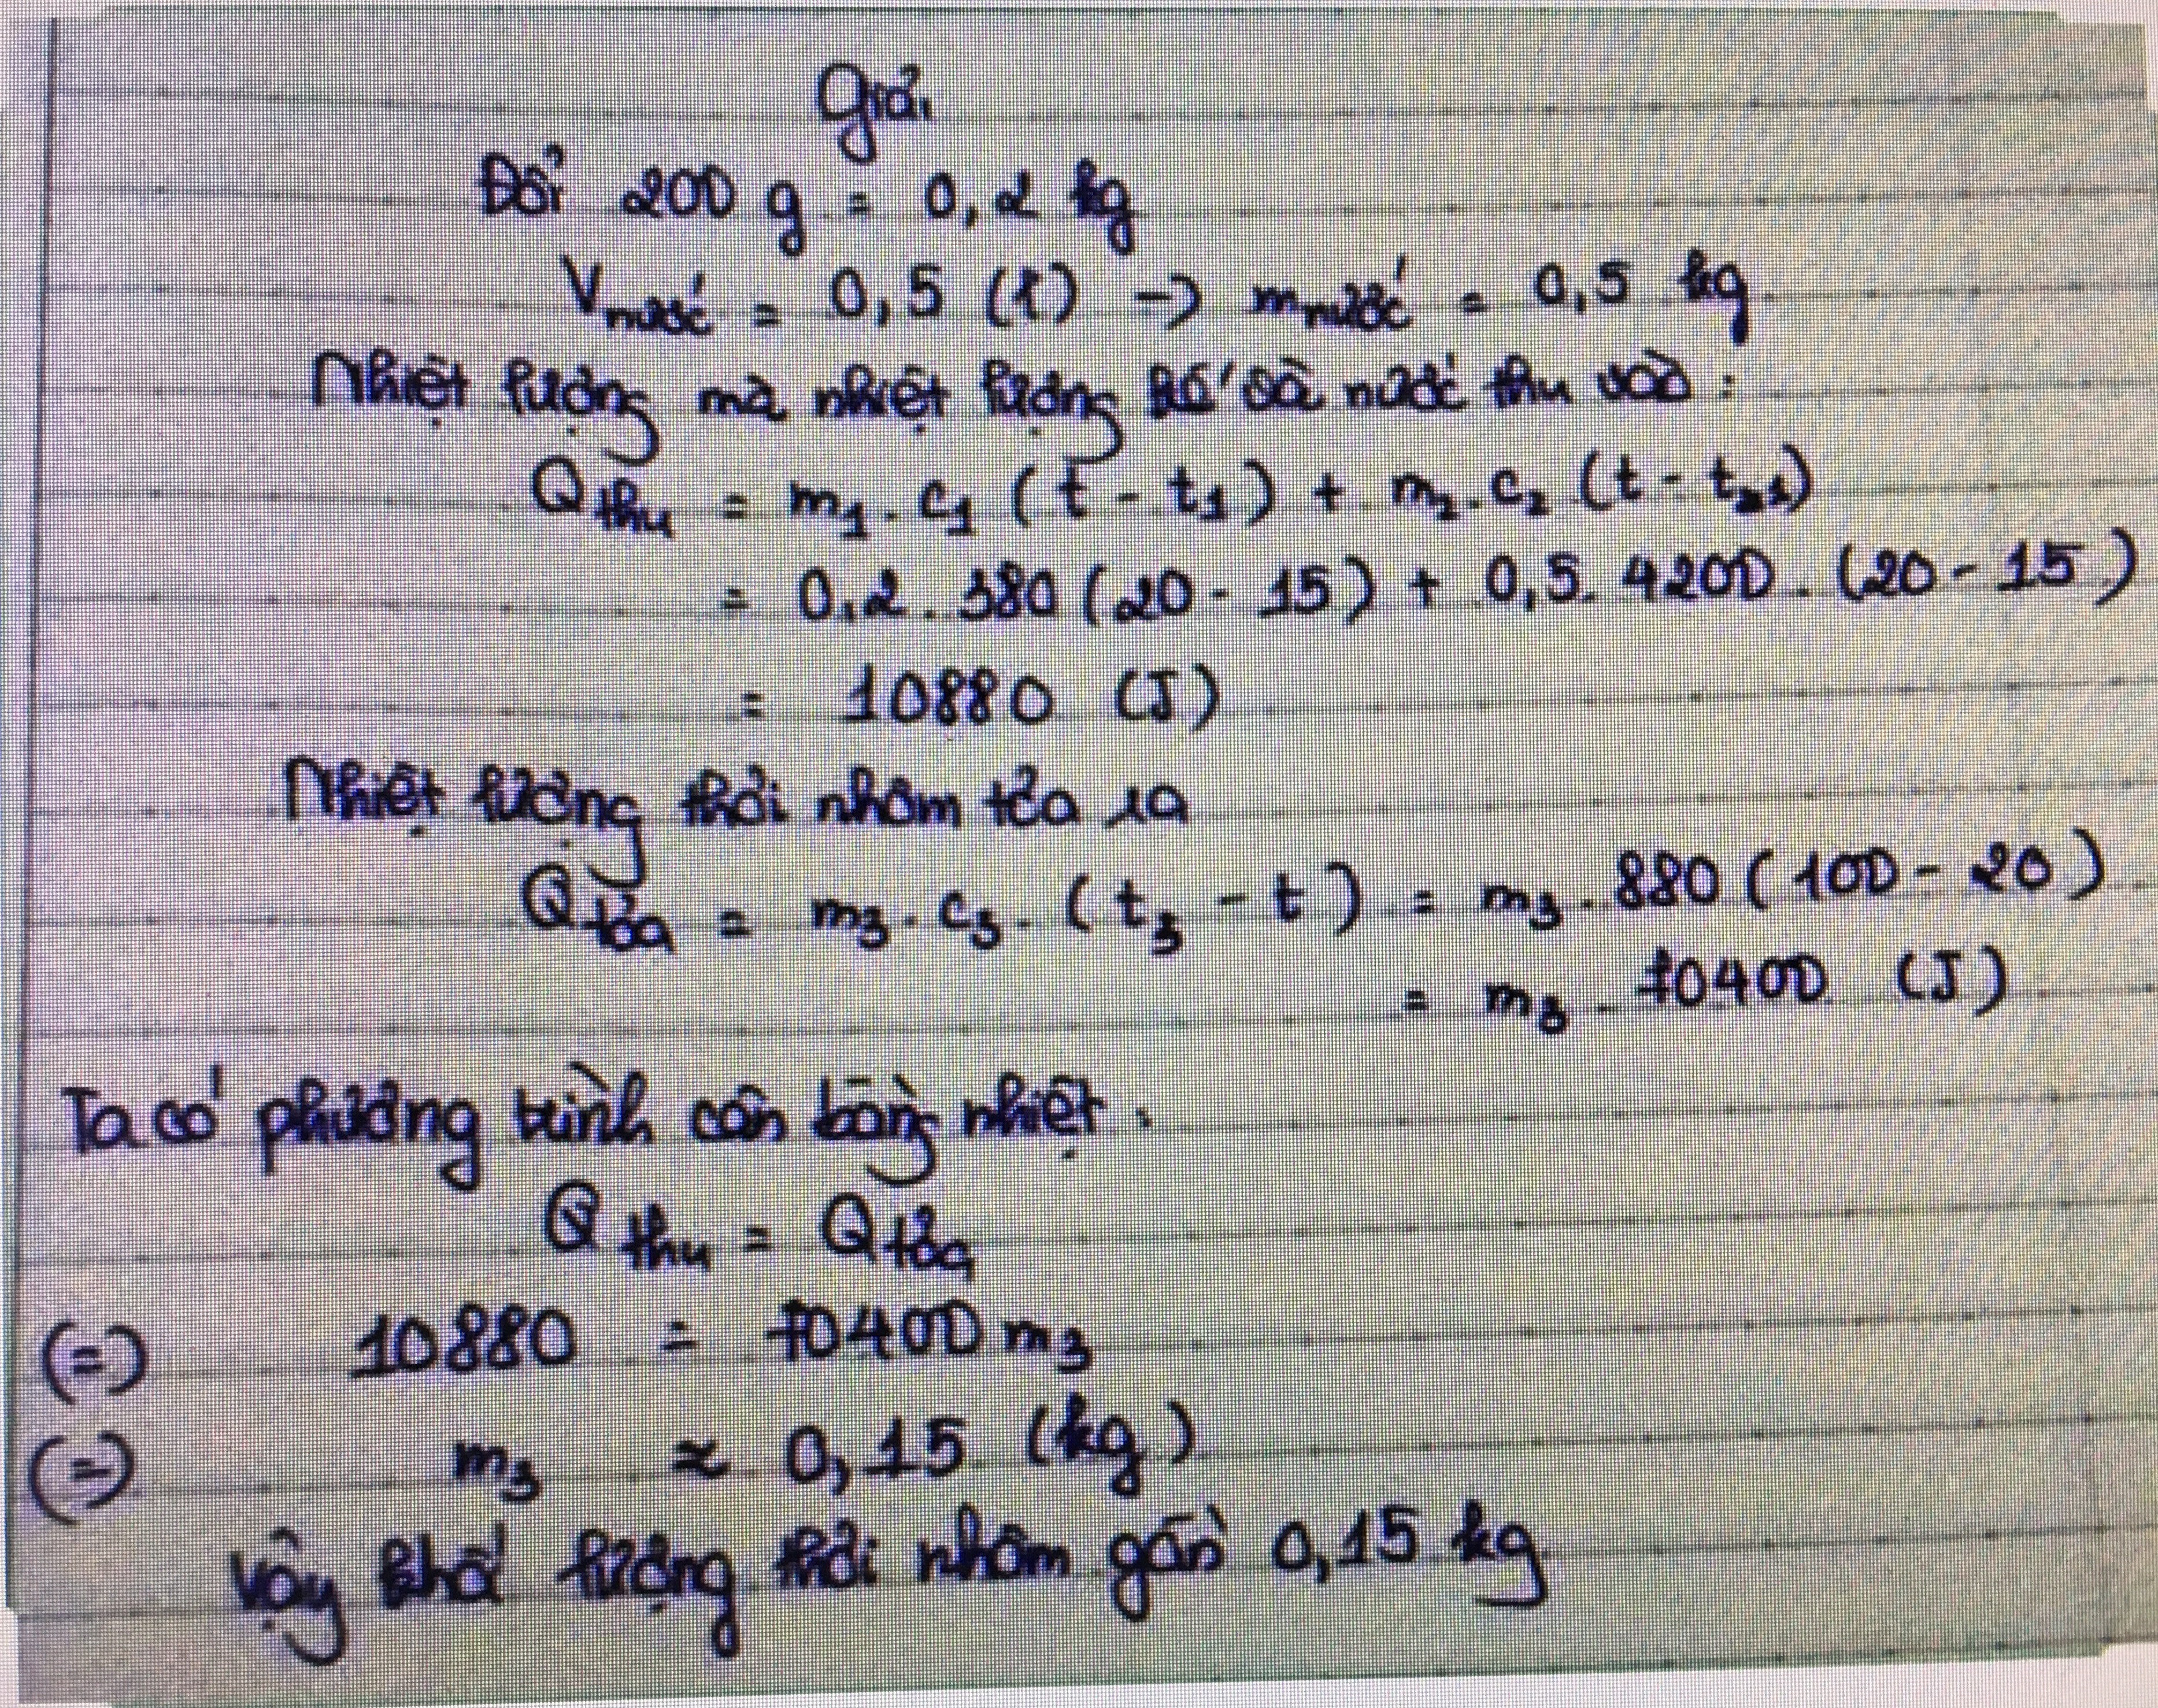 Giải
Đổi 200 g = 0,2 kg
Vnước = 0,5 (l) -> mnước = 0,5 kg.
Nhiệt lượng mà nhiệt lượng kế và nước thu vào :
Qthu = m1. c1 (t - t1) + m2. c2 (t - t1)
= 0,2. 380 (20 - 15) + 0,5. 4200. (20 - 15)
= 10880 (J)
Nhiệt lượng thỏi nhôm tỏa ra
Qtỏa = m3. c3. (t3 - t) = m3. 880 (100 - 20)
= m3. 70400 (J)
Ta có phương trình cân bằng nhiệt.
Qthu = Qtỏa
(=) 10880 = 70400 m3
(=) m3 ≈ 0,15 (kg)
Vậy khối lượng thỏi nhôm gần 0,15 kg.